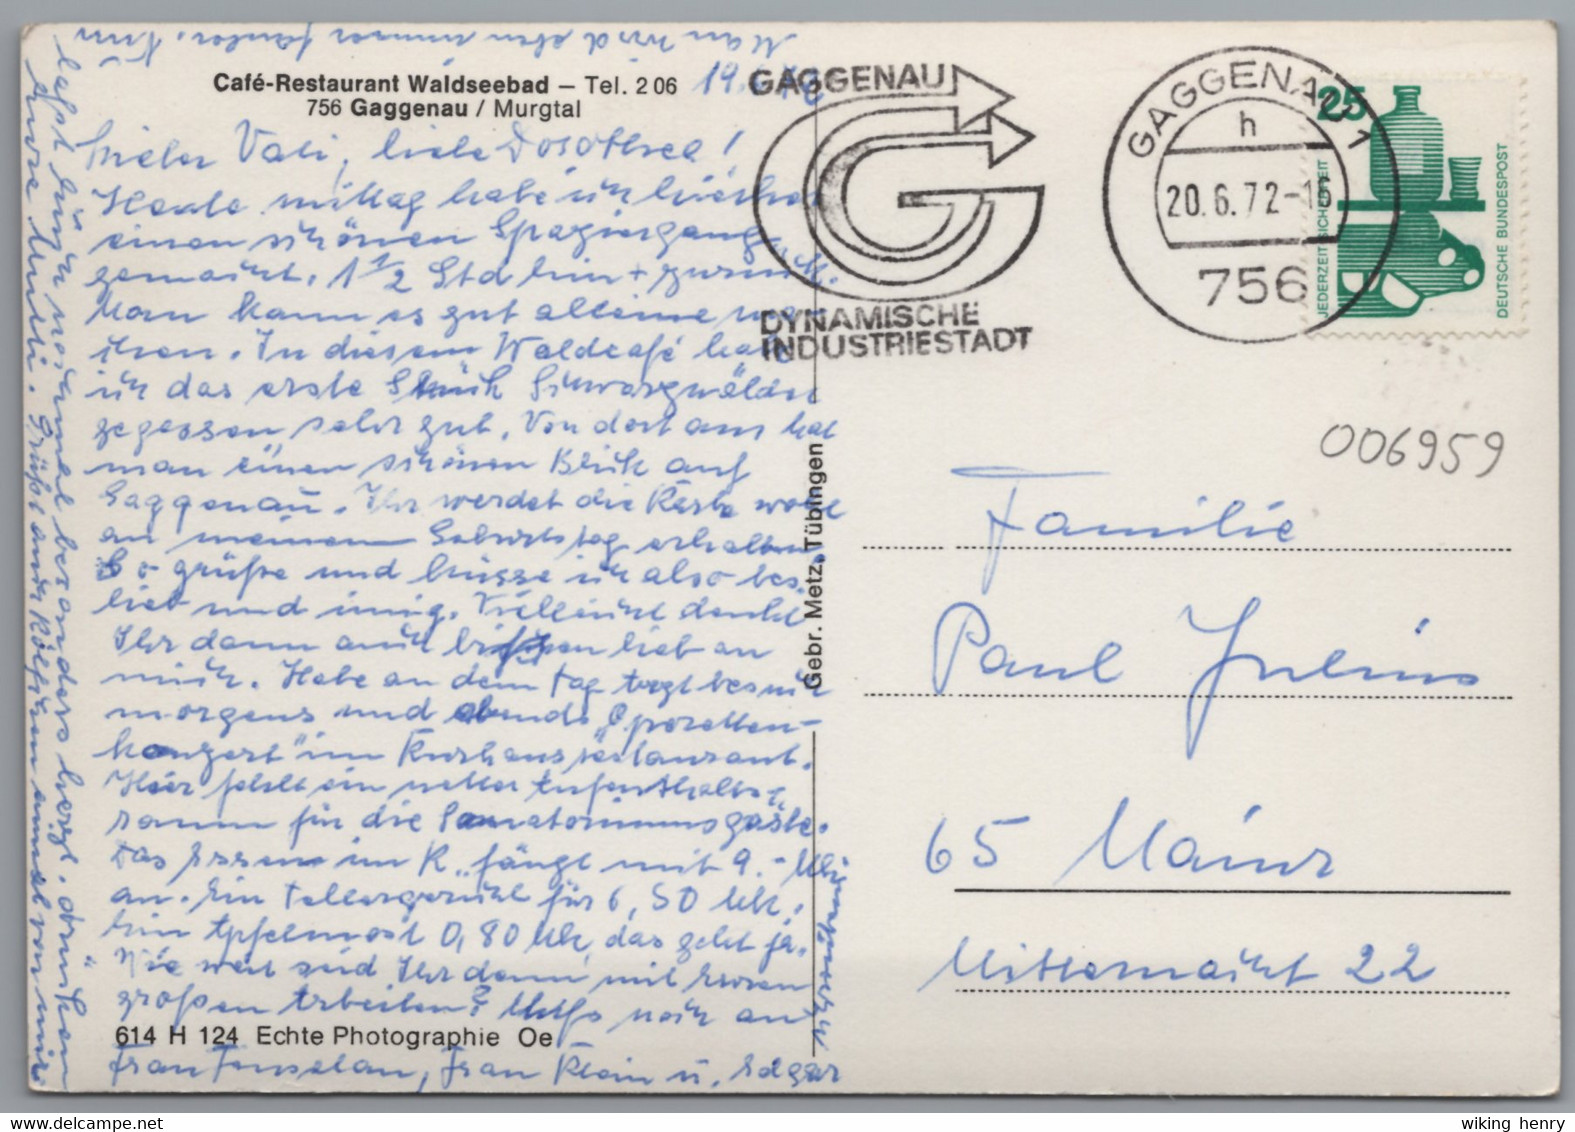 Café-Restaurant Waldseebad – Tel. 2 06
756 Gaggenau / Murgtal
19.6.72
Lieber Vati, liebe Dorothee!
Heute mittag habe ich hierher
einen schönen Spaziergang
gemacht. 1 1/2 Std hin + zurück.
Man kann es gut alleine ma-
chen. In diesem Waldcafé habe
ich das erste Stück Schwarzwälder
gegessen, sehr gut. Von dort aus hat
man einen schönen Blick auf
Gaggenau. Ihr werdet die Karte wohl
an meinem Geburtstag erhalten.
So grüße und küsse ich also bes.
lieb und innig. Vielleicht denkt
Ihr dann auch lieb an
mich. Habe an dem Tag
morgens und abends „Operetten-
konzert" im Kurhausrestaurant.
Hier fehlt ein netter Aufenthalts-
raum für die Sanatoriumsgäste.
Das Essen im K. fängt mit 9.-
an. Ein Tellergericht für 6,50 Mk,
Ein Apfelmost 0,80 Mk, das geht ja.
Wie weit seid Ihr denn mit Euren
großen Arbeiten? noch an
Frau Klein u. Edgar
Man wird eben immer fauler. Nun
laßt Euch nochmal besonders herzl. drücken
Eure Mutti. Grüßt auch einmal von mir
614 H 124 Echte Photographie Oe
Gebr. Metz, Tübingen
GAGGENAU
DYNAMISCHE
INDUSTRIESTADT
GAGGENAU 1
h
20.6.72-16
756
25
JEDERZEIT SICHERHEIT
DEUTSCHE BUNDESPOST
006959
Familie
Paul Julius
65 Mainz
Mitternacht 22
wiking henry